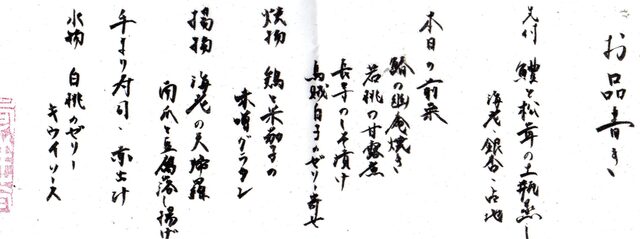 お品書き
先付 鱧と松茸の土瓶蒸し
海老・銀杏・三つ葉
本日の前菜
鰆の幽庵焼き
若桃の甘露煮
長芋のしそ漬け
烏賊白子のゼリー寄せ
焼物 鶏と米茄子の
味噌グラタン
揚物 海老の天婦羅
南瓜と豆腐落し揚げ
手まり寿司・赤出汁
水物 白桃のゼリー
キウイソース